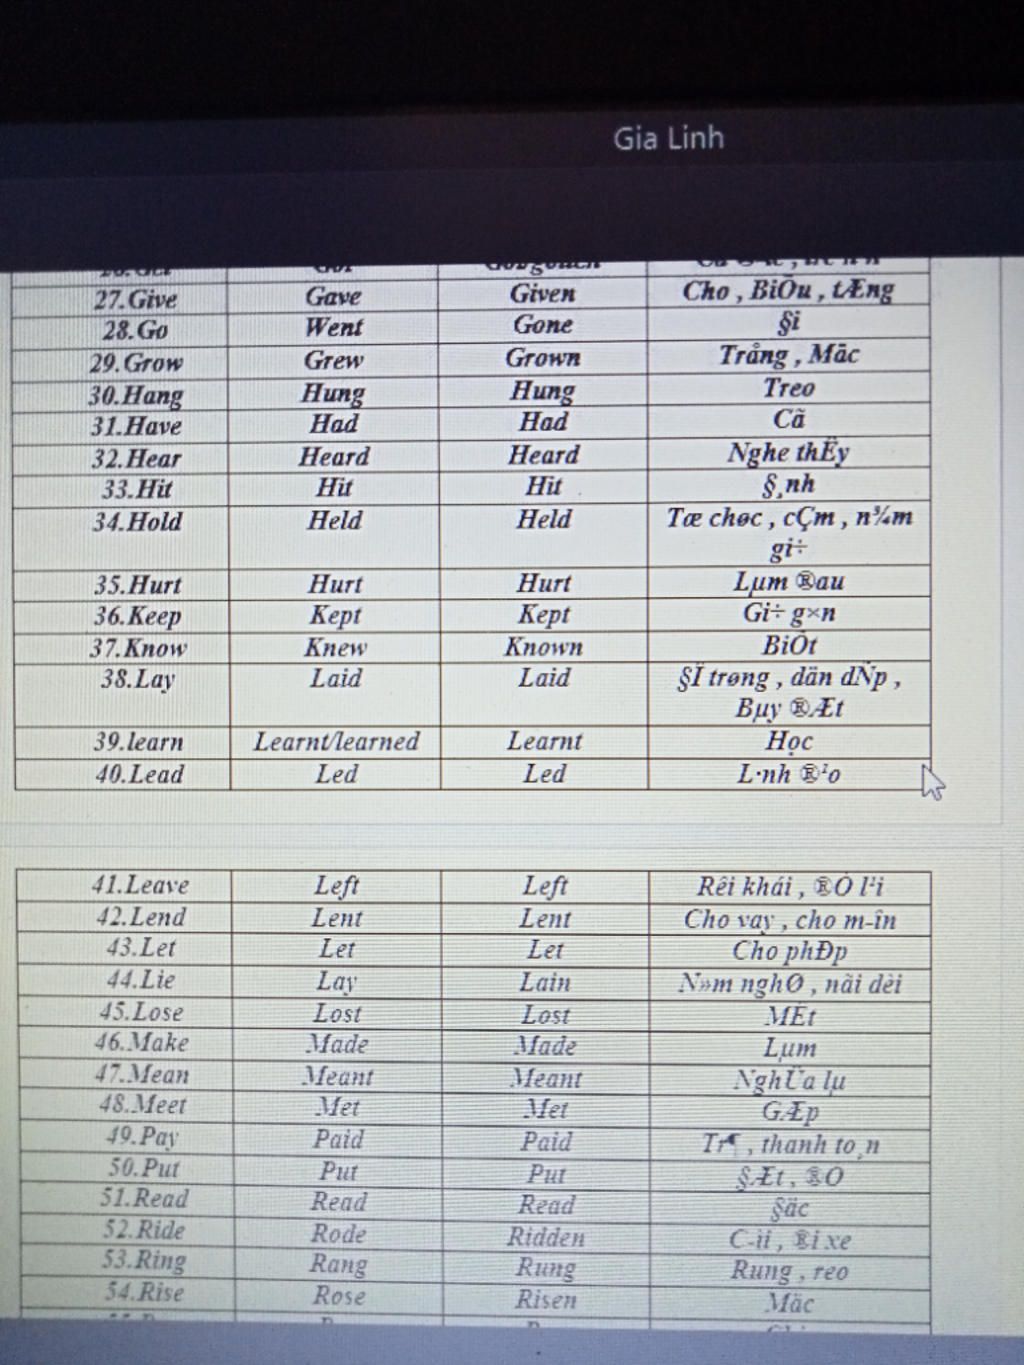 Gia Linh
27.Give Gave Given Cho , BiÕu , tÆng
28.Go Went Gone §i
29.Grow Grew Grown Trång , Mäc
30.Hang Hung Hung Treo
31.Have Had Had Cã
32.Hear Heard Heard Nghe thÊy
33.Hit Hit Hit §¸nh
34.Hold Held Held Tæ chøc , cÇm , n¾m
gi÷
35.Hurt Hurt Hurt Lµm ®au
36.Keep Kept Kept Gi÷ g×n
37.Know Knew Known BiÕt
38.Lay Laid Laid §Î trøng , dän dÑp ,
Bµy ®Æt
39.learn Learnt/learned Learnt Học
40.Lead Led Led L·nh ®¹o
41.Leave Left Left Rêi khái , ®Ó l¹i
42.Lend Lent Lent Cho vay , cho m-în
43.Let Let Let Cho phÐp
44.Lie Lay Lain N»m nghØ , nãi dèi
45.Lose Lost Lost MÊt
46.Make Made Made Lµm
47.Mean Meant Meant NghÜa lµ
48.Meet Met Met GÆp
49.Pay Paid Paid Tr¶ , thanh to¸n
50.Put Put Put §Æt , ®Ó
51.Read Read Read §äc
52.Ride Rode Ridden C-ìi , ®i xe
53.Ring Rang Rung Rung , reo
54.Rise Rose Risen Mäc